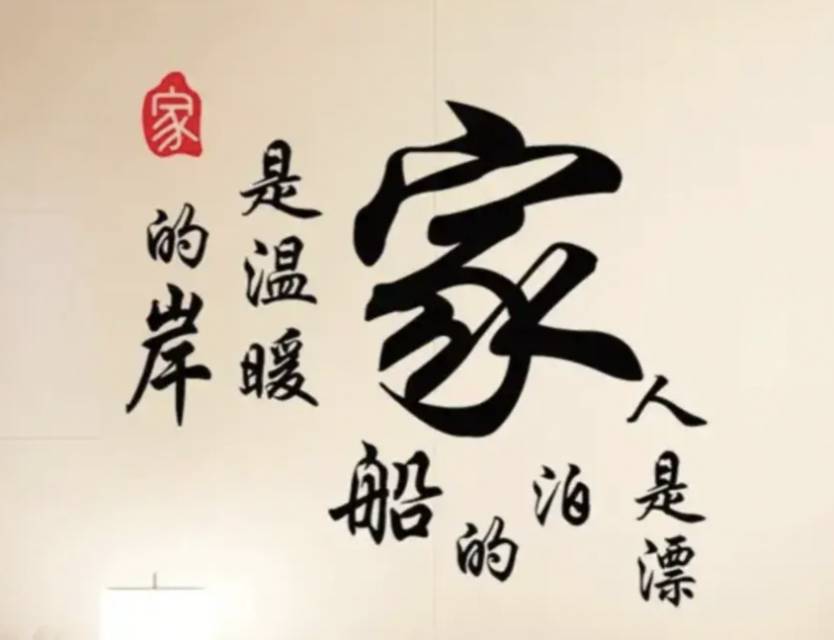 人是漂泊的船
家
是温暖
的岸
家